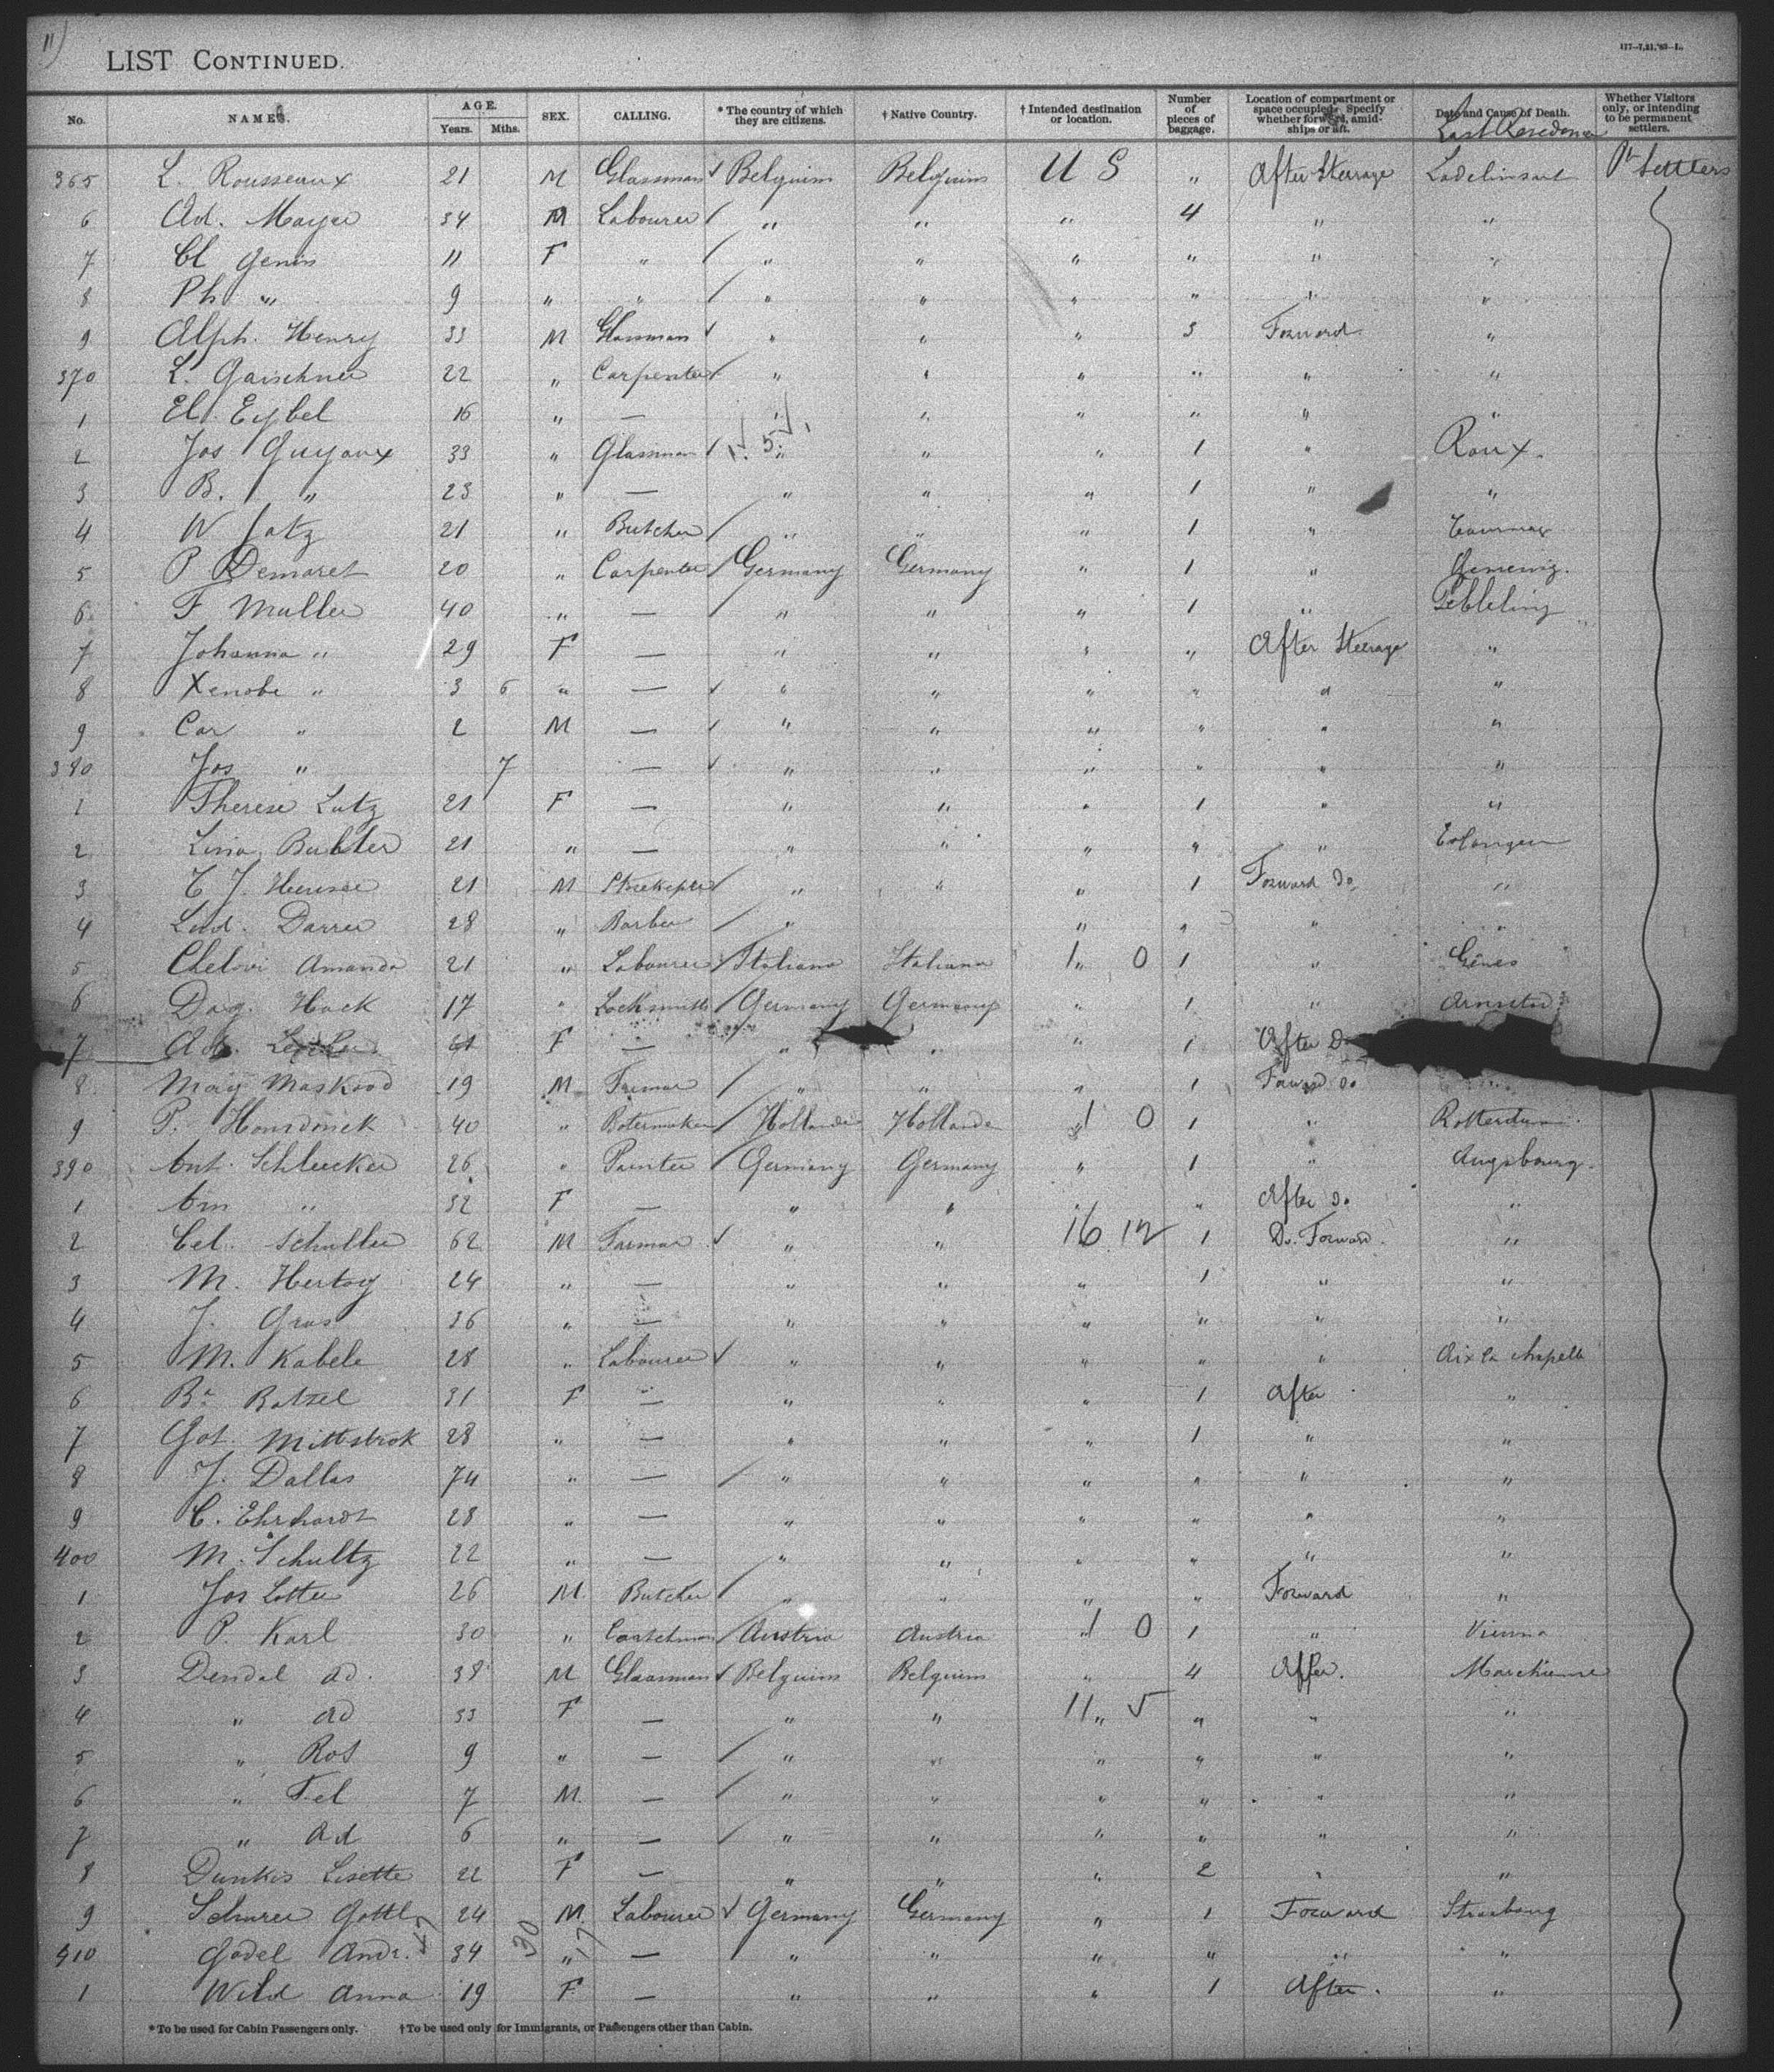 11)
LIST CONTINUED.
177-7,21,'83-L.
No. NAMES. AGE. Years. Mths. SEX. CALLING. * The country of which they are citizens. † Native Country. † Intended destination or location. Number of pieces of baggage. Location of compartment or space occupied. Specify whether forward, amid-ships or aft. Date and Cause of Death. Whether Visitors only, or intending to be permanent settlers.
Last Residence
365 L. Rousseaux 21 M Glassman ✓ Belgium Belgium U S " After Steerage Lodelinsart Pt Settlers
6 Ad. Mayer 34 M Labourer / " " " 4 " "
7 Cl Genin 11 F " / " " " " " "
8 Ph " 9 " " / " " " " " "
9 Alph. Henry 33 M Glassman ✓ " " " 3 Forward "
370 L. Gaischner 22 " Carpenter / " " " " " "
1 El. Eybel 16 " — " " " " " "
2 Jos Guyaux 33 " Glassman ✓ " " " 1 " Roux.
3 B. " 23 " — " " " 1 " "
4 W Jatz 21 " Butcher / " " " 1 "
5 P Demaret 20 " Carpenter / Germany Germany " 1 "
6 F Muller 40 " — / " " " 1 "
7 Johanna " 29 F — " " " " After Steerage "
8 Xenobe " 3 6 " — ✓ " " " " " "
9 Car " 2 M — ✓ " " " " " "
380 Jos " 7 — ✓ " " " " " "
1 Therese Lutz 21 F — " " " 1 " "
2 Lina Buhler 21 " — " " " " " Erlangen
3 21 M / " " " 1 Forward Do "
4 Lud. Darrer 28 " Barber / " " " " "
5 Amanda 21 " Labourer / Italiana Italiana 1 0 1 " Gênes
6 Dag. Hock 17 " Locksmith / Germany Germany " 1 "
7 Ad. F — " " " 1 After Do
8 May Maskood 19 M / " " " 1 Forward Do
9 P. 40 " / Hollande Hollande 1 0 1 " Rotterdam.
390 Ant. Schlucker 26 " Painter / Germany Germany " 1 " Augsbourg.
1 Am " 32 F — " " " " After Do "
2 Cel. Schuller 62 M Farmer ✓ " " 16 12 1 Do. Forward. "
3 M. Hertog 24 " — " " " 1 " "
4 J. Gras 36 " — " " " " " "
5 M. Kabele 28 " Labourer ✓ " " " " " Aix la chapelle
6 Ba Batzel 31 F — " " " 1 After "
7 Got. Mittstrok 28 " — " " " 1 " "
8 J. Dallas 74 " — / " " " " " "
9 C. Ehrhardt 28 " — " " " " " "
400 M. Schultz 22 " — " " " " " "
1 Jos Lotter 26 M Butcher / " " " " Forward "
2 P. Karl 30 " / Austria Austria 1 0 1 " Vienna
3 Dendal Ad. 38 M Glassman ✓ Belguim Belguim " 4 After. Marchienne
4 " Ad 33 F — " " 11 5 " " "
5 " Ros 9 " — / " " " " " "
6 " Fel 7 M — / " " " " " "
7 " Ad 6 " — / " " " " " "
8 Dunkis Lisette 22 F — " " " 2 " "
9 Schurer Gottl 24 M Labourer ✓ Germany Germany " 1 Forward Strasbourg
410 Godel Andr. 34 " — " " " " " "
1 Wild Anna 19 F — " " " 1 After. "
30 17
* To be used for Cabin Passengers only. † To be used only for Immigrants, or Passengers other than Cabin.